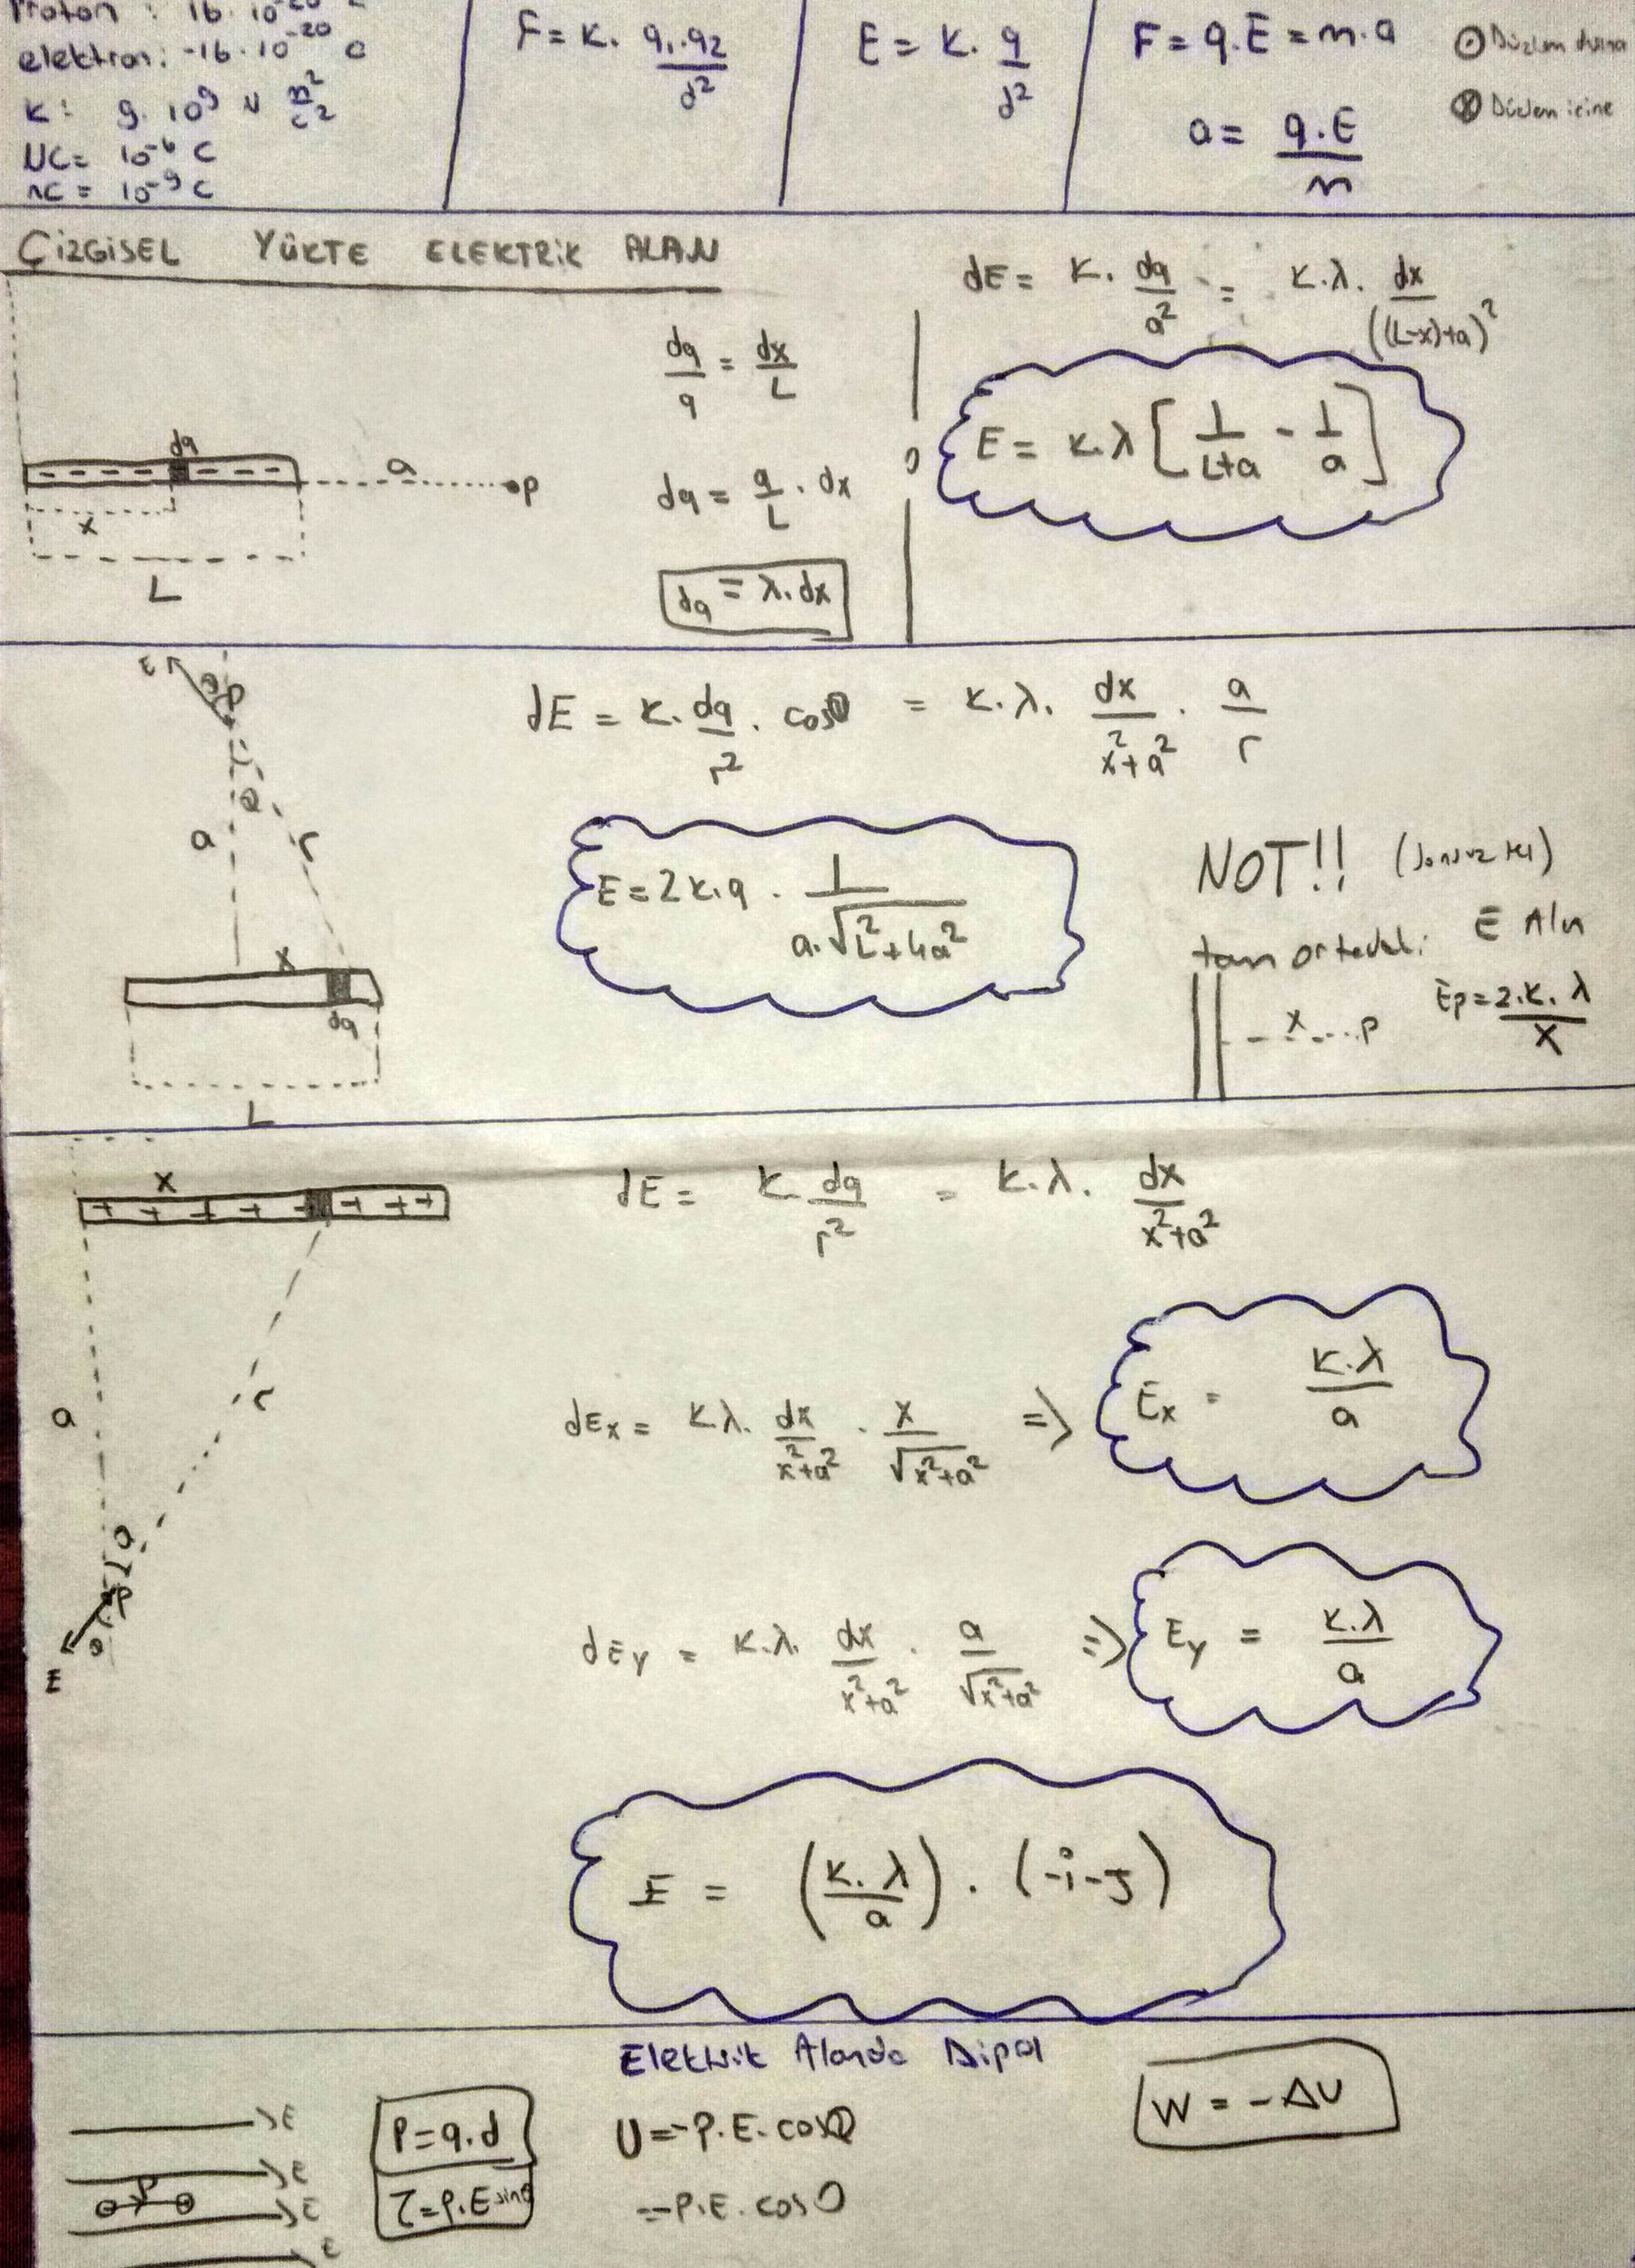 Proton : 16. 10⁻²⁰
elektron: -16. 10⁻²⁰ C
K: 9. 10⁹ N m²/c²
UC= 10⁻⁶ C
nC = 10⁻⁹ C
F= K. q₁.q₂/d²
E = K. q/d²
F= q.E = m.a
a= q.E/m
⊙ Düzlem dışına
⊗ Düzlem içine
ÇİZGİSEL YÜKTE ELEKTRİK ALAN
dq
a
P
x
L
dq/q = dx/L
dq = q/L . dx
dq = λ.dx
dE = K. dq/a² = K.λ. dx/((L-x)+a)²
E = K.λ [1/L+a - 1/a]
E
θ
P
θ
a
r
x
dq
L
dE = K. dq/r² . cosθ = K.λ. dx/x²+a² . a/r
E = 2K.q . 1/a.√L²+4a²
NOT!!
E Aln
x P
Ep = 2.K.λ/x
x
+ + + + + + + +
a
r
θ
P
θ
E
dE = K. dq/r² = K.λ. dx/x²+a²
dEx = K.λ. dx/x²+a² . x/√x²+a² => Ex = K.λ/a
dEy = K.λ. dx/x²+a² . a/√x²+a² => Ey = K.λ/a
E = (K.λ/a) . (-i-j)
Elektrik Alanda Dipol
E
E
P
E
E
P=q.d
τ=P.E sinθ
U=-P.E.cosθ
=-P.E.cosθ
W = -ΔU